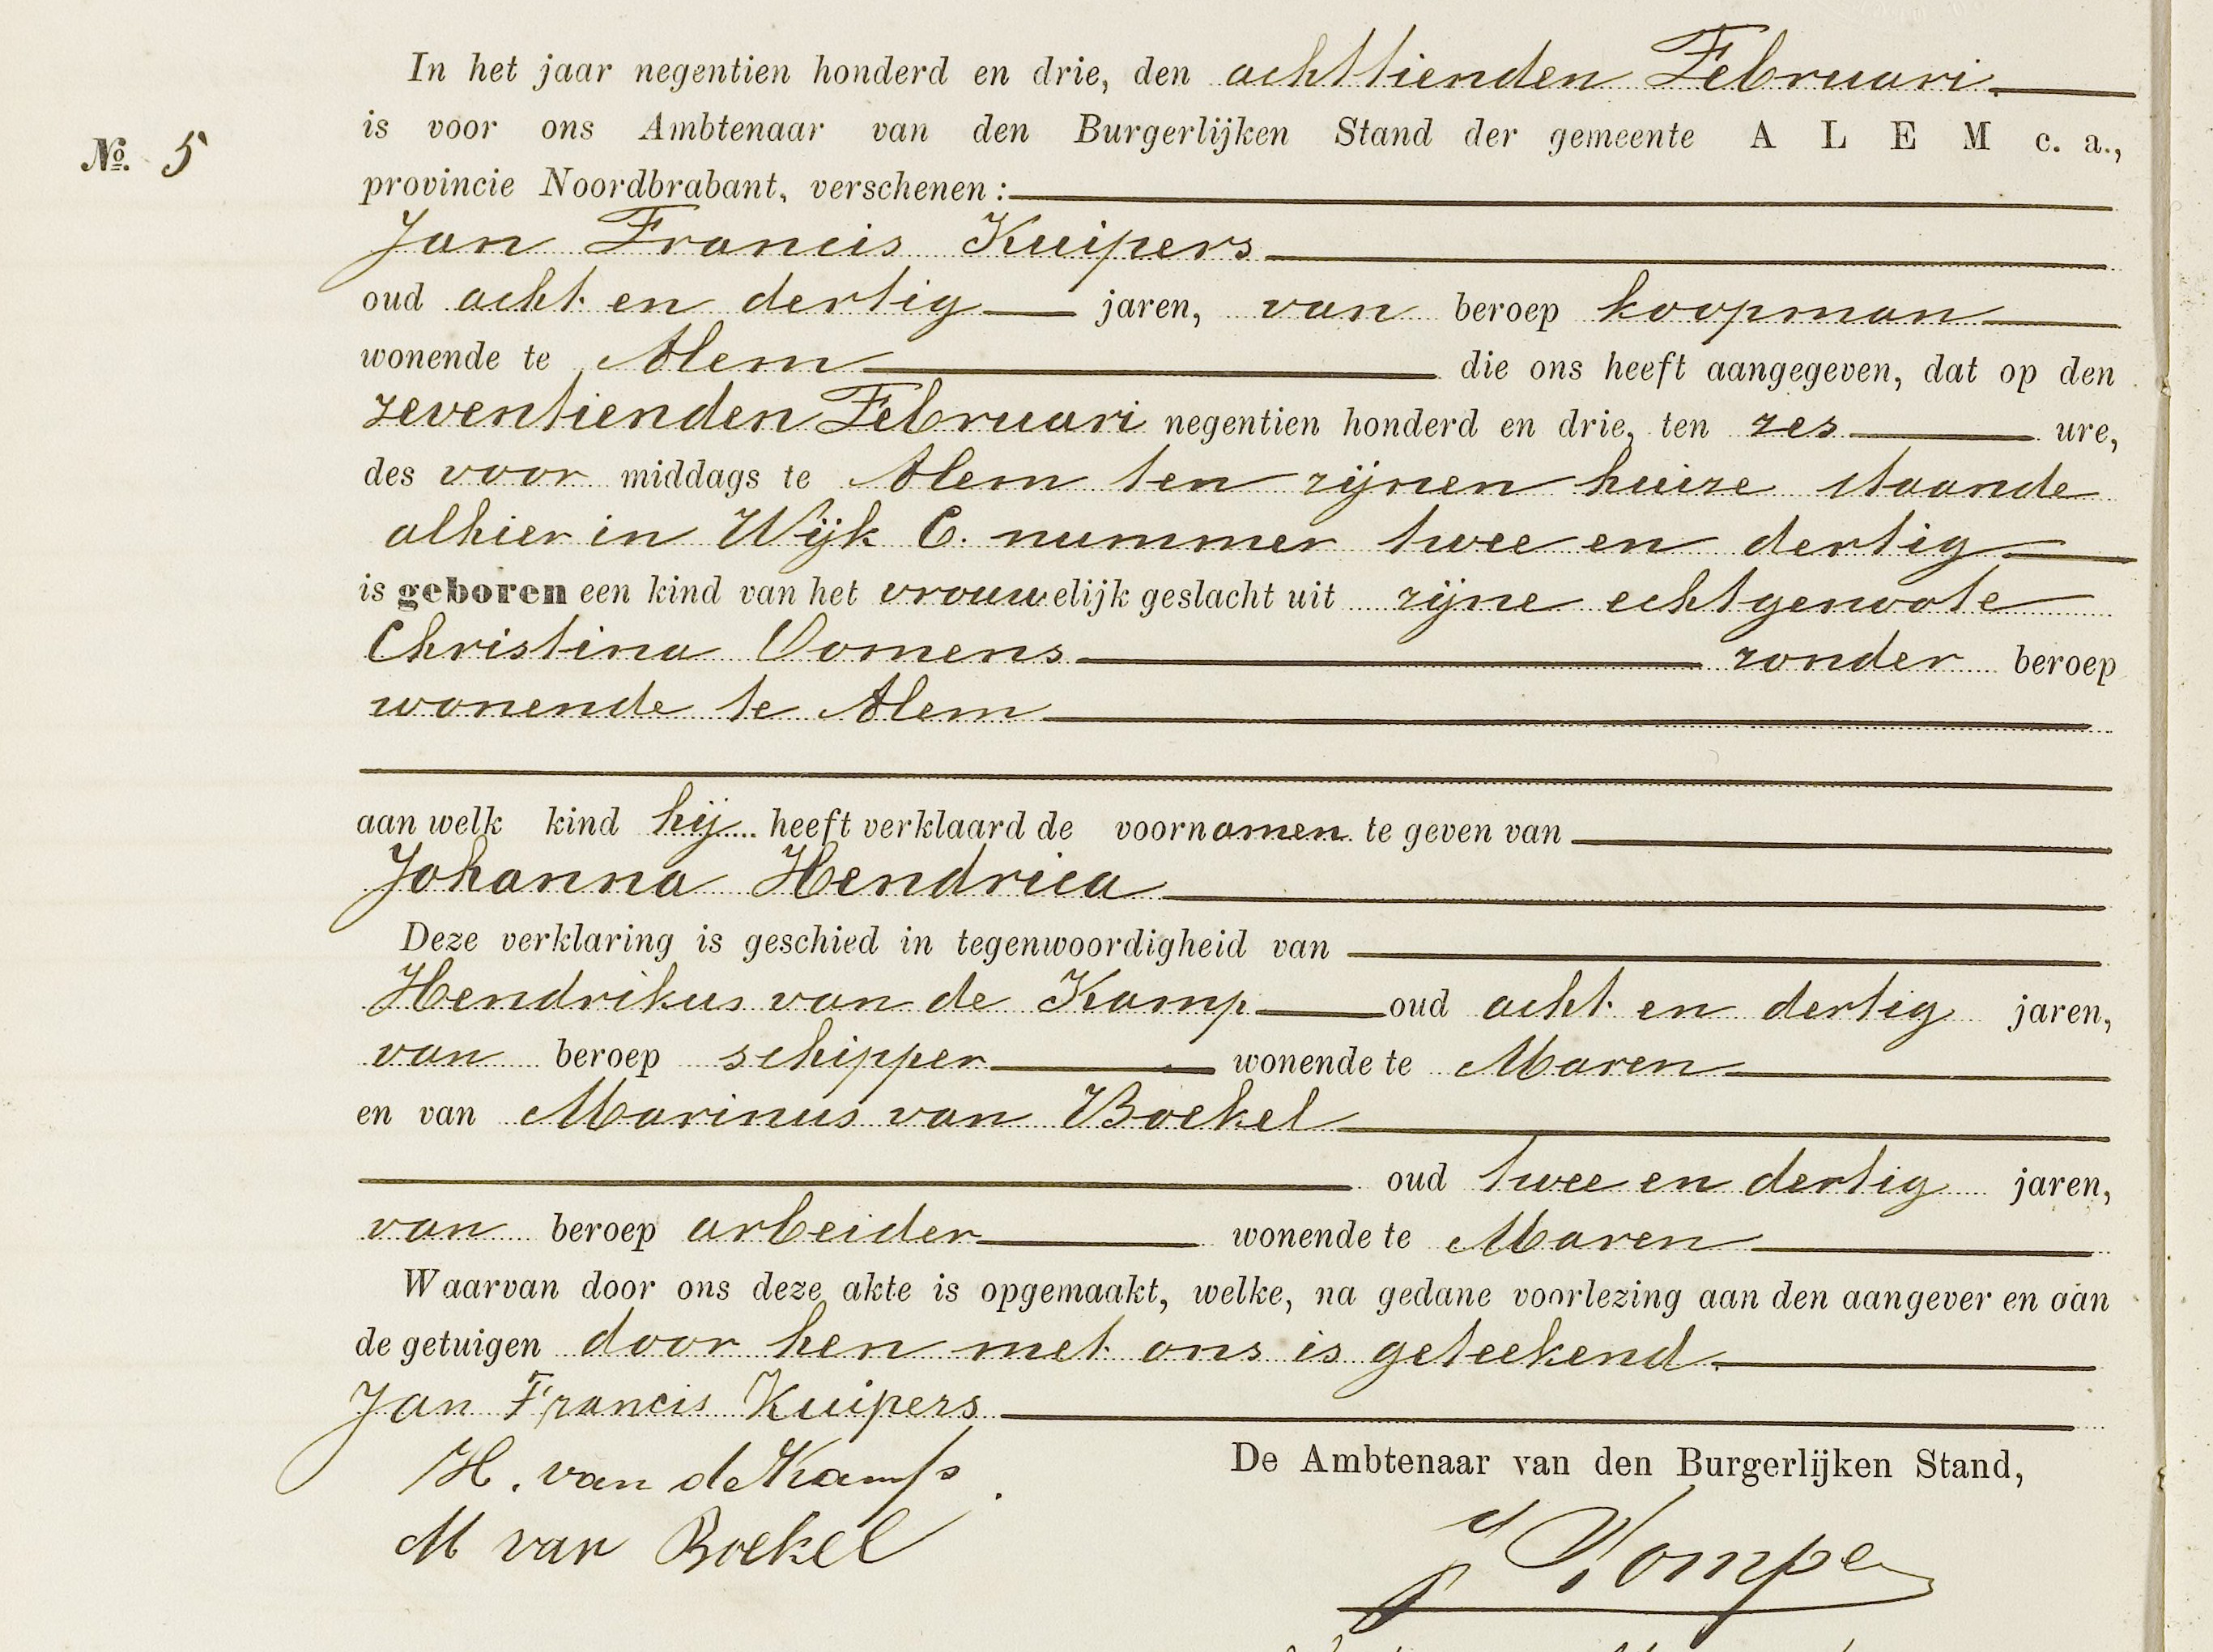 In het jaar negentien honderd en drie, den achttienden Februari
is voor ons Ambtenaar van den Burgerlijken Stand der gemeente ALEM c. a.,
No. 5
provincie Noordbrabant, verschenen:
Jan Francis Kuipers
oud acht en dertig jaren, van beroep koopman
wonende te Alem die ons heeft aangegeven, dat op den
zeventienden Februari negentien honderd en drie, ten zes ure,
des voor middags te Alem ten zijnen huize staande
alhier in Wijk C. nummer twee en dertig
is geboren een kind van het vrouwelijk geslacht uit zijne echtgenoote
Christina Oomens zonder beroep
wonende te Alem
aan welk kind hij heeft verklaard de voornamen te geven van
Johanna Hendrica
Deze verklaring is geschied in tegenwoordigheid van
Hendrikus van de Kamp oud acht en dertig jaren,
van beroep schipper wonende te Maren
en van Marinus van Boekel
oud twee en dertig jaren,
van beroep arbeider wonende te Maren
Waarvan door ons deze akte is opgemaakt, welke, na gedane voorlezing aan den aangever en aan
de getuigen door hen met ons is geteekend.
Jan Francis Kuipers
H. van de Kamp
De Ambtenaar van den Burgerlijken Stand,
M van Boekel